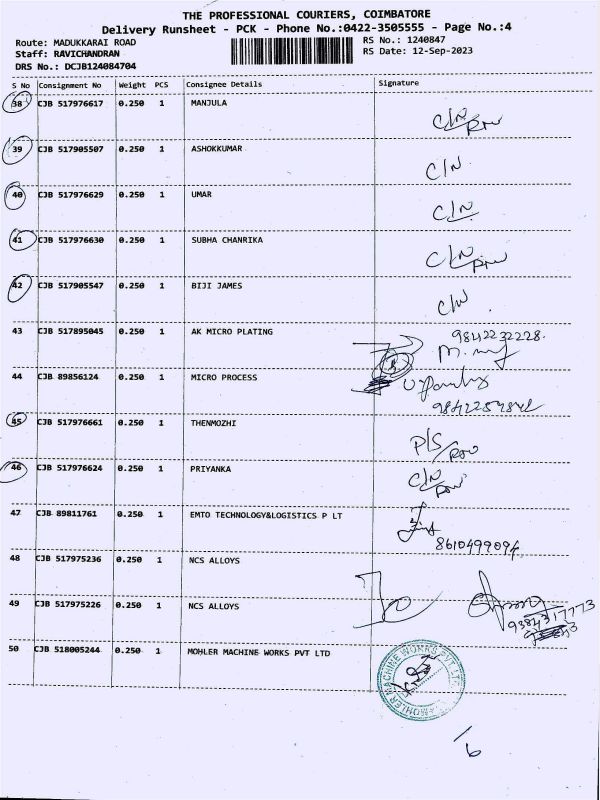 THE PROFESSIONAL COURIERS, COIMBATORE
Delivery Runsheet - PCK - Phone No.:0422-3505555 - Page No.:4
Route: MADUKKARAI ROAD RS No.: 1240847
Staff: RAVICHANDRAN RS Date: 12-Sep-2023
DRS No.: DCJB124084704
S No Consignment No Weight PCS Consignee Details Signature
38 CJB 517976617 0.250 1 MANJULA C/N
39 CJB 517905507 0.250 1 ASHOKKUMAR C/N
40 CJB 517976629 0.250 1 UMAR C/N
41 CJB 517976630 0.250 1 SUBHA CHANRIKA C/N
42 CJB 517905547 0.250 1 BIJI JAMES C/N
43 CJB 517895045 0.250 1 AK MICRO PLATING 9842232228.
44 CJB 89856124 0.250 1 MICRO PROCESS
45 CJB 517976661 0.250 1 THENMOZHI P/S
46 CJB 517976624 0.250 1 PRIYANKA C/N
47 CJB 89811761 0.250 1 EMTO TECHNOLOGY&LOGISTICS P LT
8610499094
48 CJB 517975236 0.250 1 NCS ALLOYS
49 CJB 517975226 0.250 1 NCS ALLOYS
9384317773
50 CJB 518005244 0.250 1 MOHLER MACHINE WORKS PVT LTD
MOHLER MACHINE WORKS PVT LTD